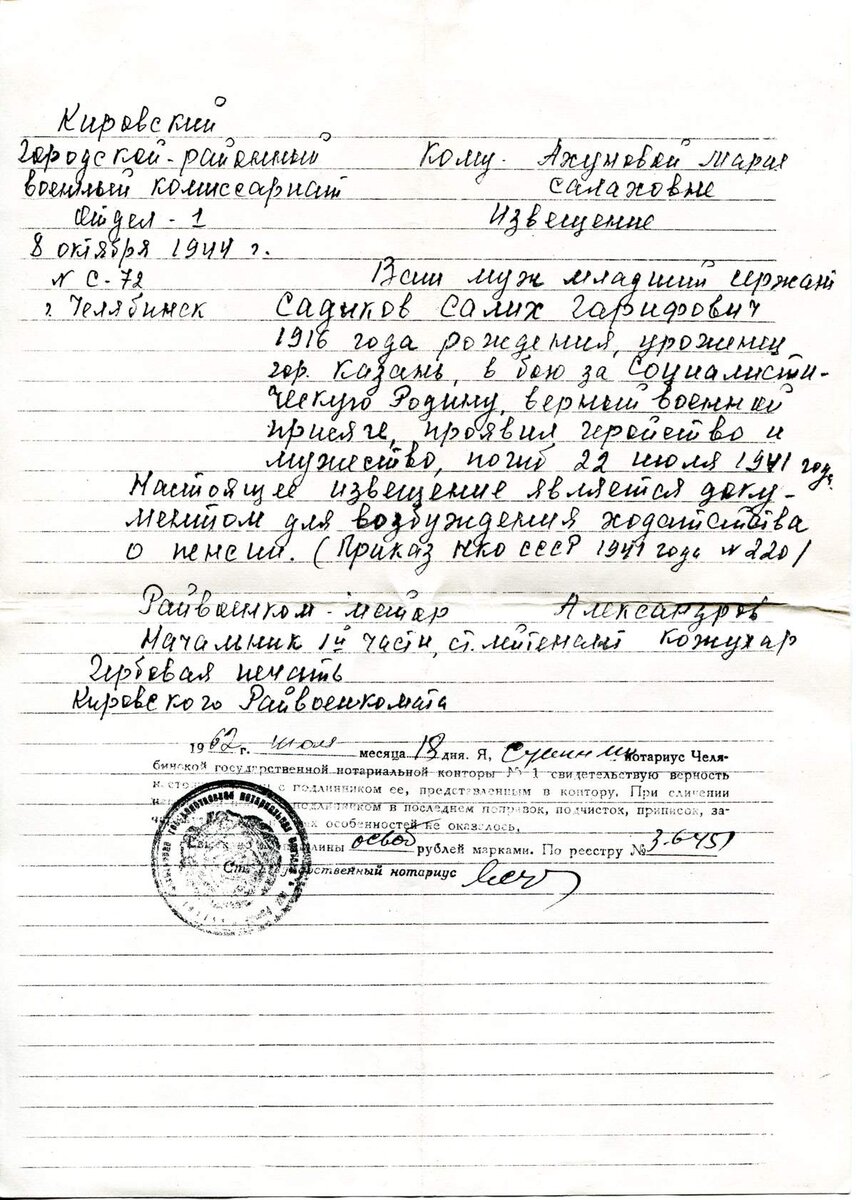 Кировский
Городской-районный
военный комиссариат
Отдел - 1
8 октября 1944 г.
N С-72
г. Челябинск
Кому. Ахуновой Марая
Салаховне
Извещение
Ваш муж младший сержант
Садыков Салих Гарифович
1916 года рождения, уроженец
гор. Казань, в бою за Социалисти-
ческую Родину, верный военной
присяге, проявил геройство и
мужество, погиб 22 июля 1941 году.
Настоящее извещение является доку-
ментом для возбуждения ходатства
о пенсии. (Приказ НКО СССР 1941 года N 220)
Райвоенком - майор Александров
Начальник 1й части, ст. лейтенант Кожухар
Гербовая печать
Кировского Райвоенкомата
1962 г. июля месяца 18 дня. Я, нотариус Челя-
бинской государственной нотариальной конторы № 1 свидетельствую верность
с подлинником ее, представленным в контору. При сличении
подлинником в последнем поправок, подчисток, приписок, за-
особенностей не оказалось,
освоб рублей марками. По реестру № 3-6451
нотариус